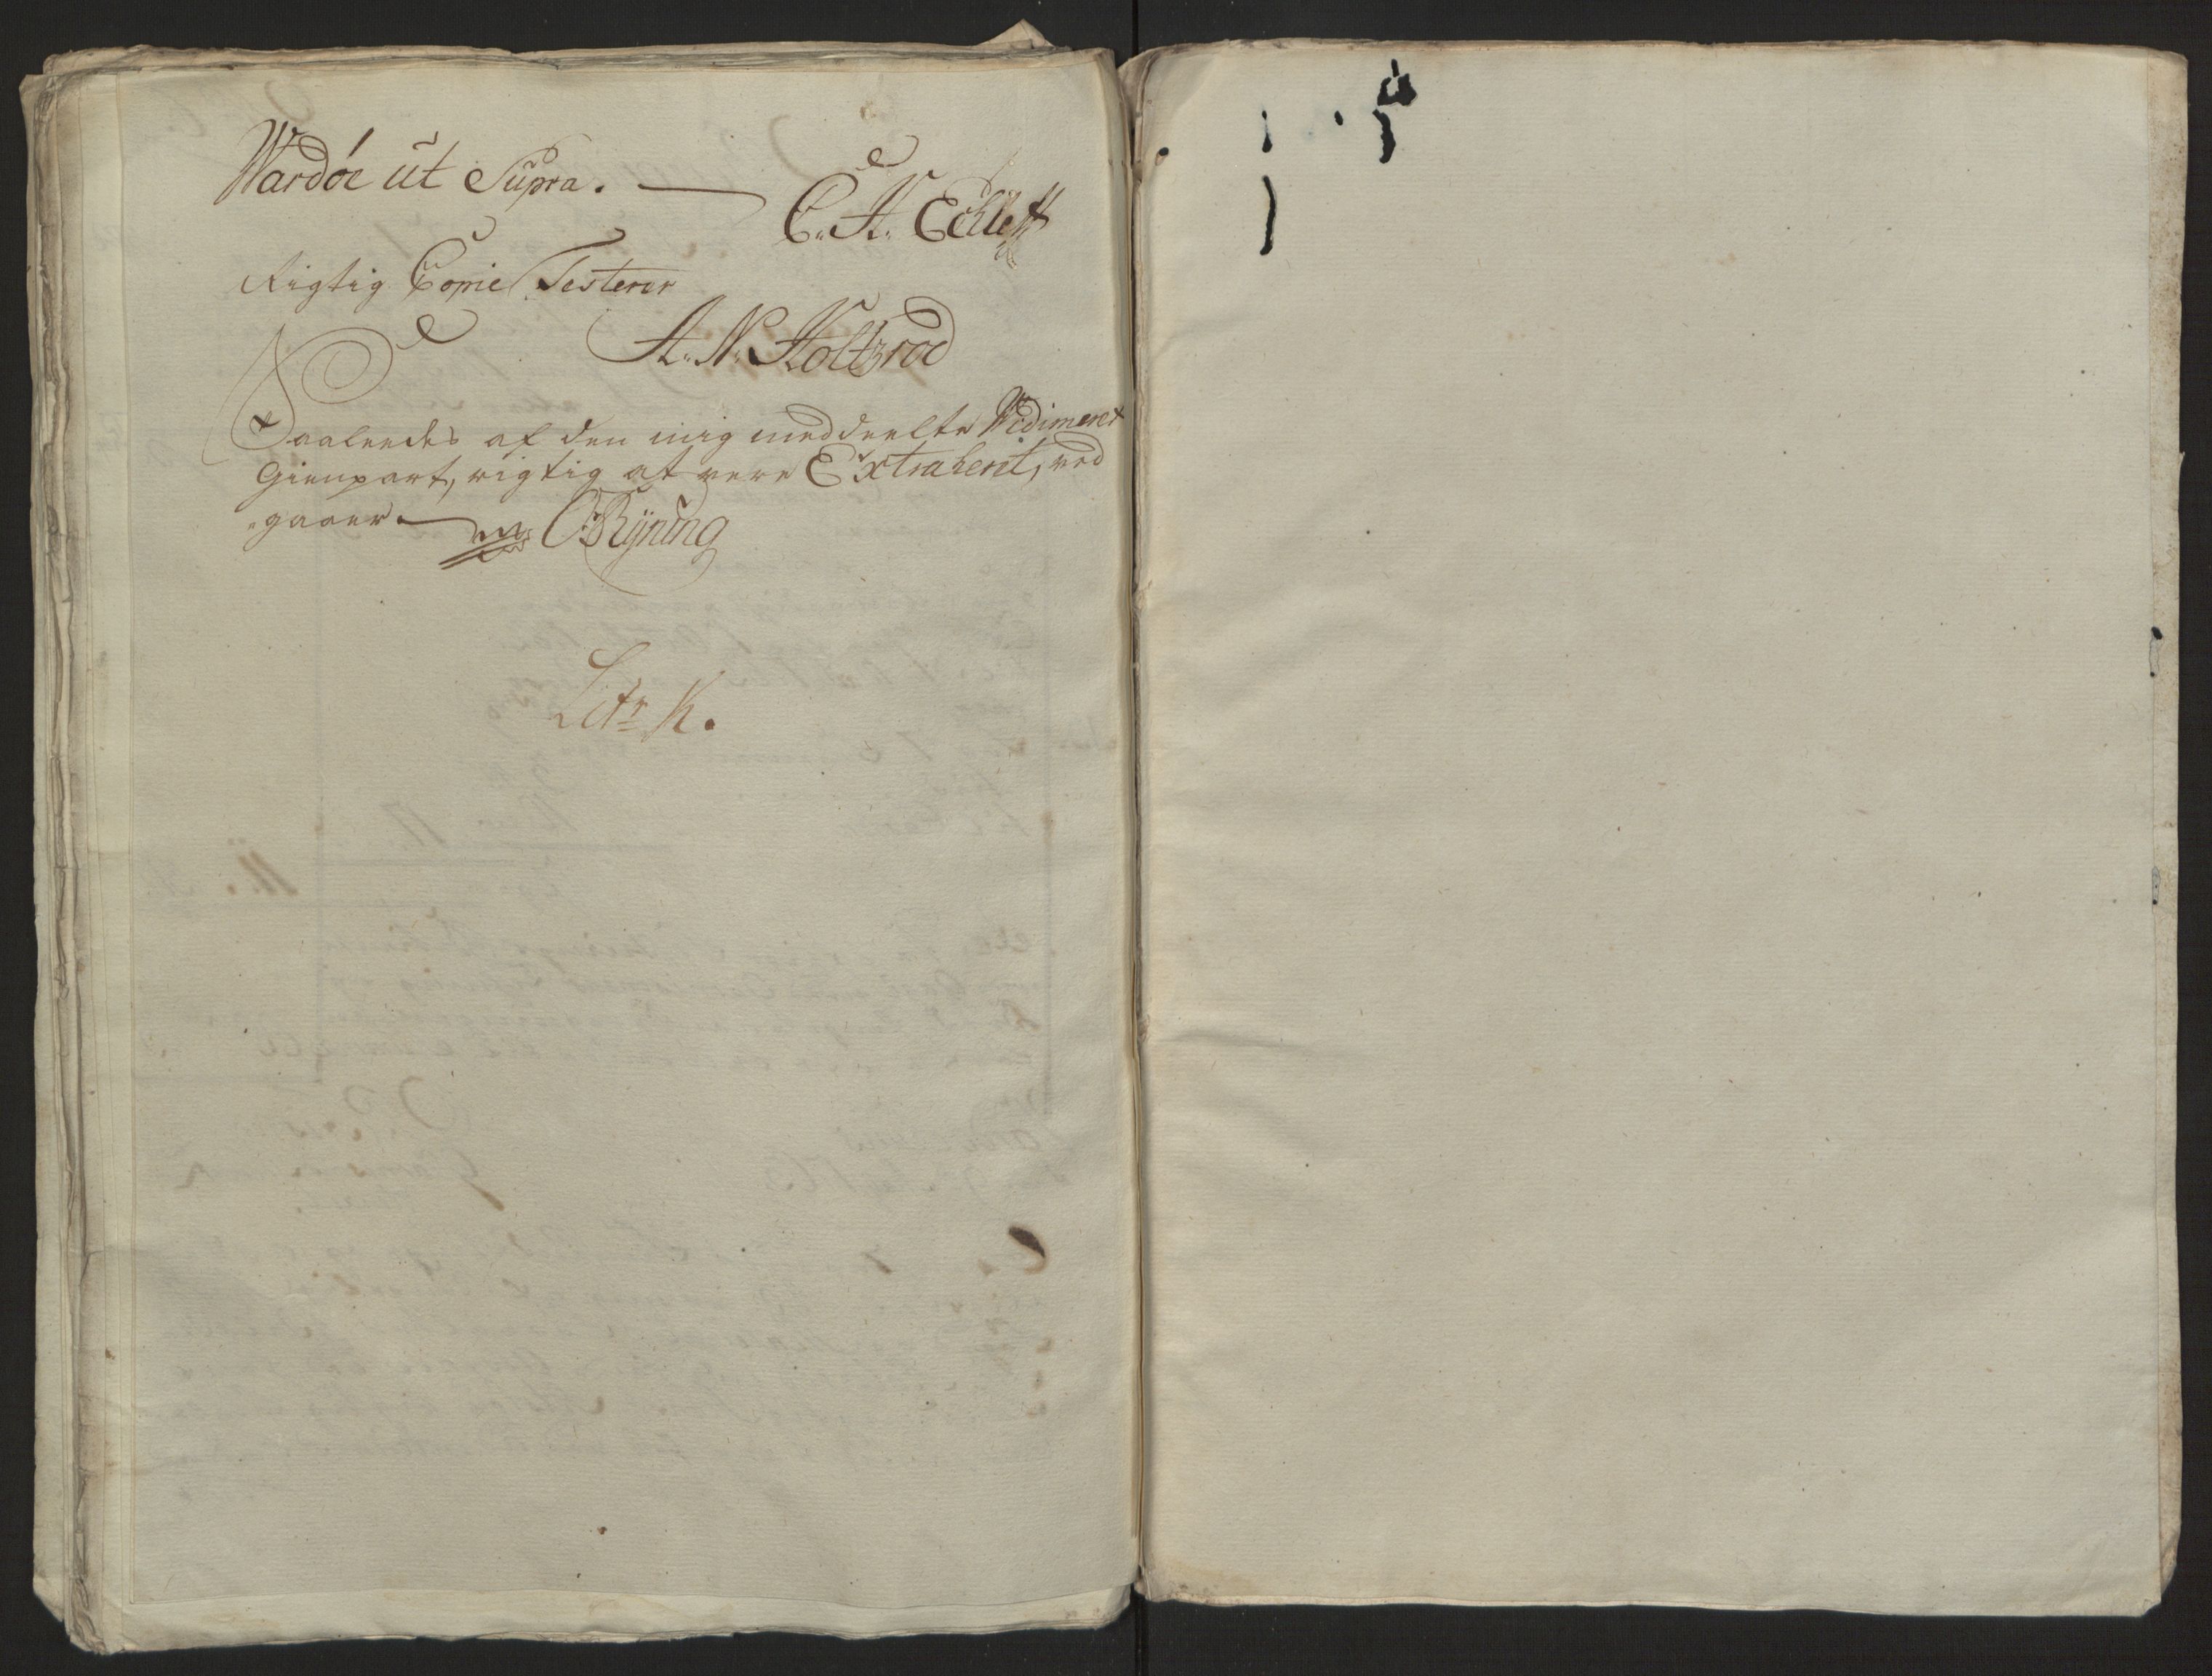 Wardöe ut Supra.
C. H. Ecklef
Rigtig Copie Testerer
H. N. Holtzrod
Saaleedes af den mig meddeelte Vidimeret
Gienpart, rigtig at vere Extraheret, ved
gaaer.
O Ryning
Litr K.